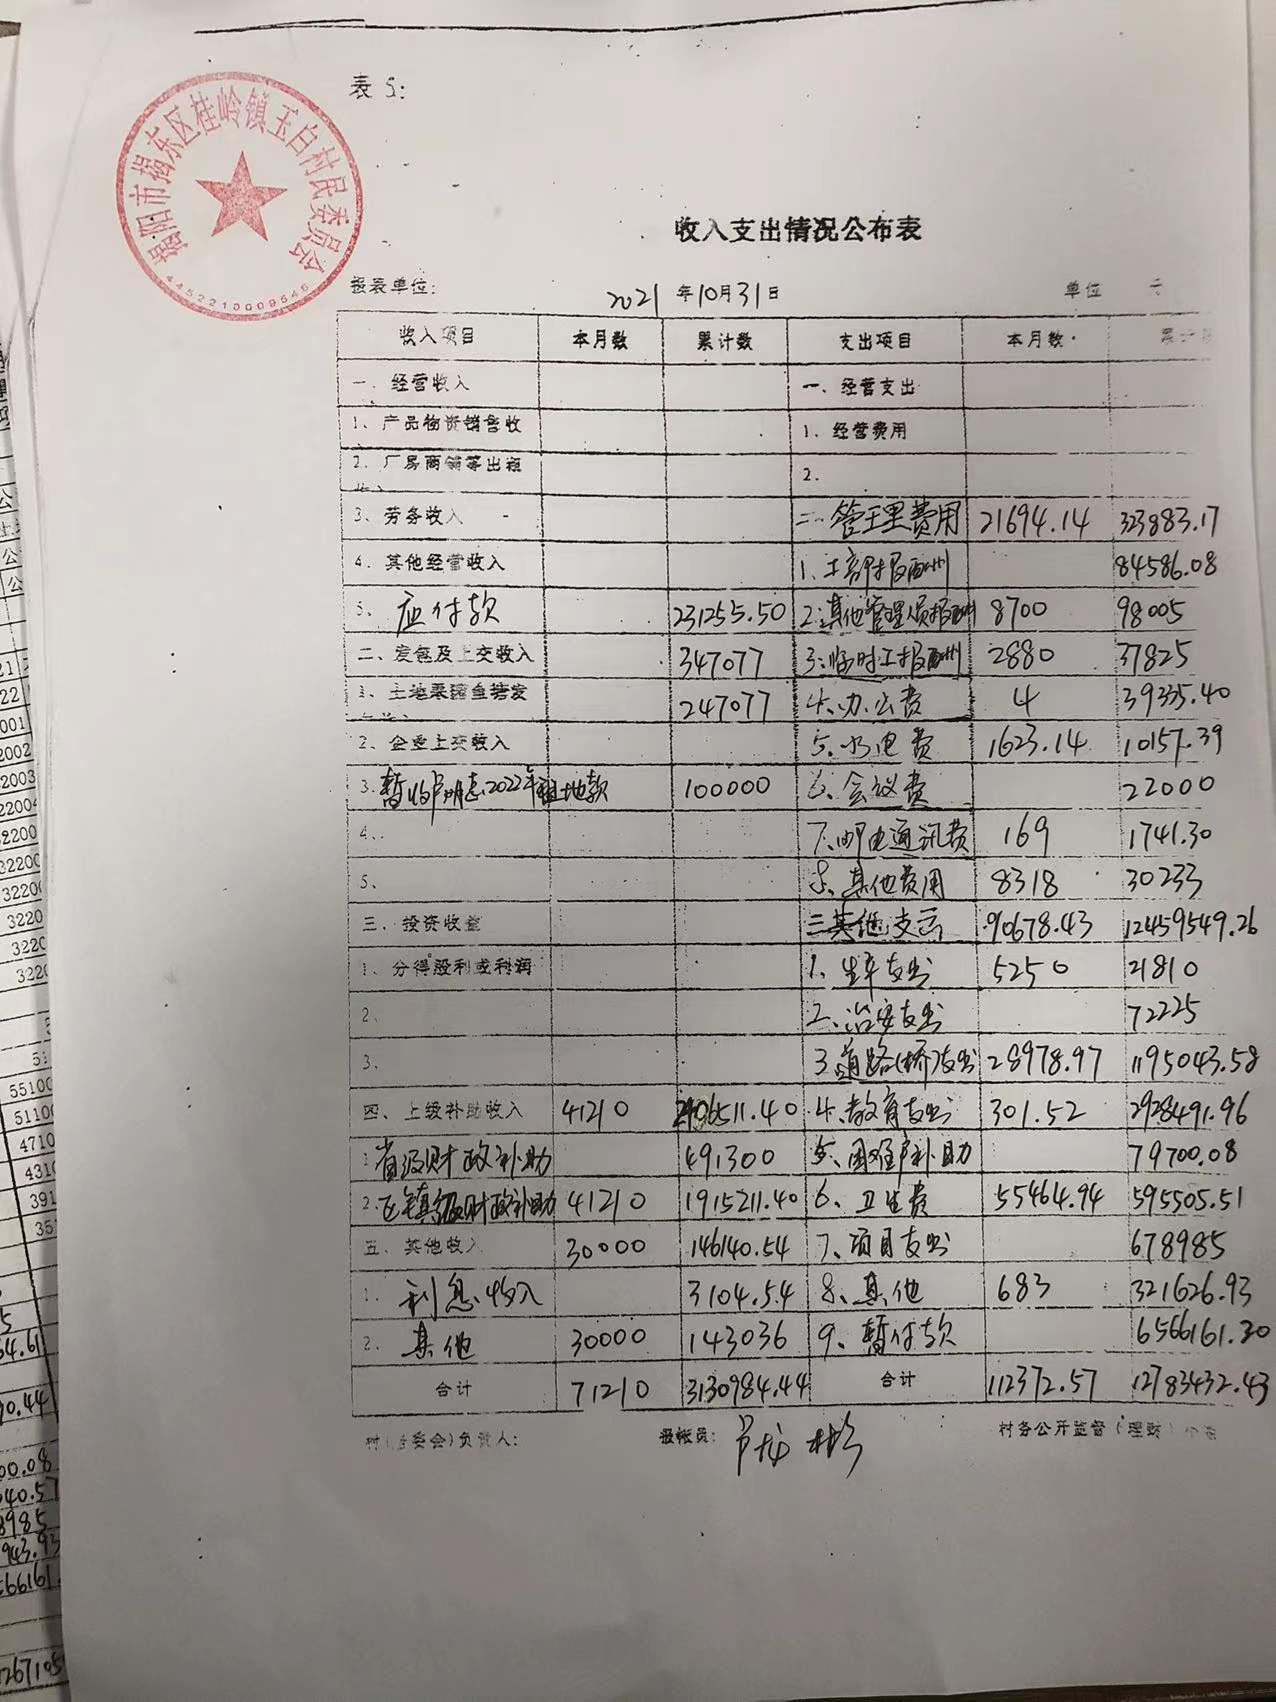 表 5:
揭阳市揭东区桂岭镇玉白村民委员会
4452210009546
收入支出情况公布表
报表单位: 2021 年 10 月 31 日 单位
收入项目 本月数 累计数 支出项目 本月数 累计
一、经营收入 一、经营支出
1、产品物资销售收 1、经营费用
2、厂房商铺等出租 2.
3、劳务收入 二、管理费用 21694.14 323883.17
4、其他经营收入 1、干部报酬 84586.08
5、应付款 231255.50 2、其他管理人员报酬 8700 98005
二、发包及上交收入 347077 3、临时工报酬 2880 37825
1、土地果园鱼塘发 247077 4、办公费 4 39335.40
2、企业上交收入 5、水电费 1623.14 10157.39
3. 暂收卢明志2022年租地款 100000 6、会议费 22000
4、 7、邮电通讯费 169 1741.30
5、 8、其他费用 8318 30233
三、投资收益 三其他支出 90678.43 12459549.26
1、分得股利或利润 1、生产支出 5250 21810
2. 2、治安支出 72225
3. 3、道路(桥)支出 28978.97 1195043.58
四、上级补助收入 41210 2406511.40 4、教育支出 301.52 2928491.96
1 省级财政补助 491300 5、困难户补助 79700.08
2. 区镇级财政补助 41210 1915211.40 6、卫生费 55464.94 595505.51
五、其他收入 30000 146140.54 7、项目支出 678985
1. 利息收入 3104.54 8、其他 683 321626.93
2. 其他 30000 143036 9、暂付款 6566161.20
合计 71210 3130984.44 合计 112372.57 12783432.43
村(居委会)负责人: 报帐员: 村务公开监督(理财)小